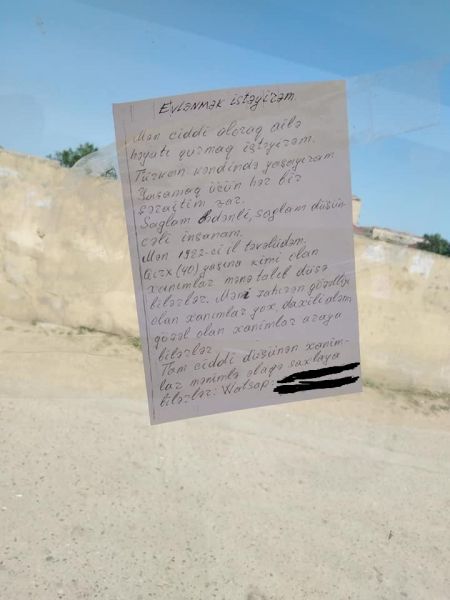 Evlənmək istəyirəm.
Mən ciddi olaraq ailə
həyatı qurmaq iştəyirəm.
Türkan kəndində yaşayıram
Yaşamaq üçün hər bir
şəraitim var.
Sağlam bədənli, sağlam düşün
cəli insanam.
Mən 1982-ci il təvəllüdəm.
Qırx (40) yaşına kimi olan
xanımlar mənə təlif düşə
bilərlər. Məni zahirən gözəlliyi
olan xanımlar yox, daxili aləmi
gözəl olan xanımlar araya
bilərlər
Tam ciddi düşünən xanım-
lar mənimlə əlaqə saxlaya
bilərlər: Watsap: